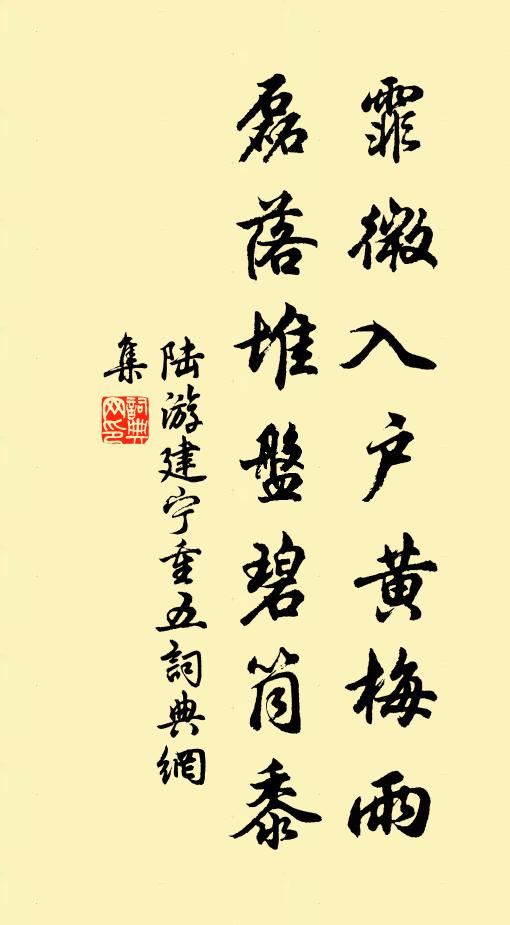 霏微入户黄梅雨
磊落堆盤碧筒黍
陆游建宁重五詞典網
集
詞典网印